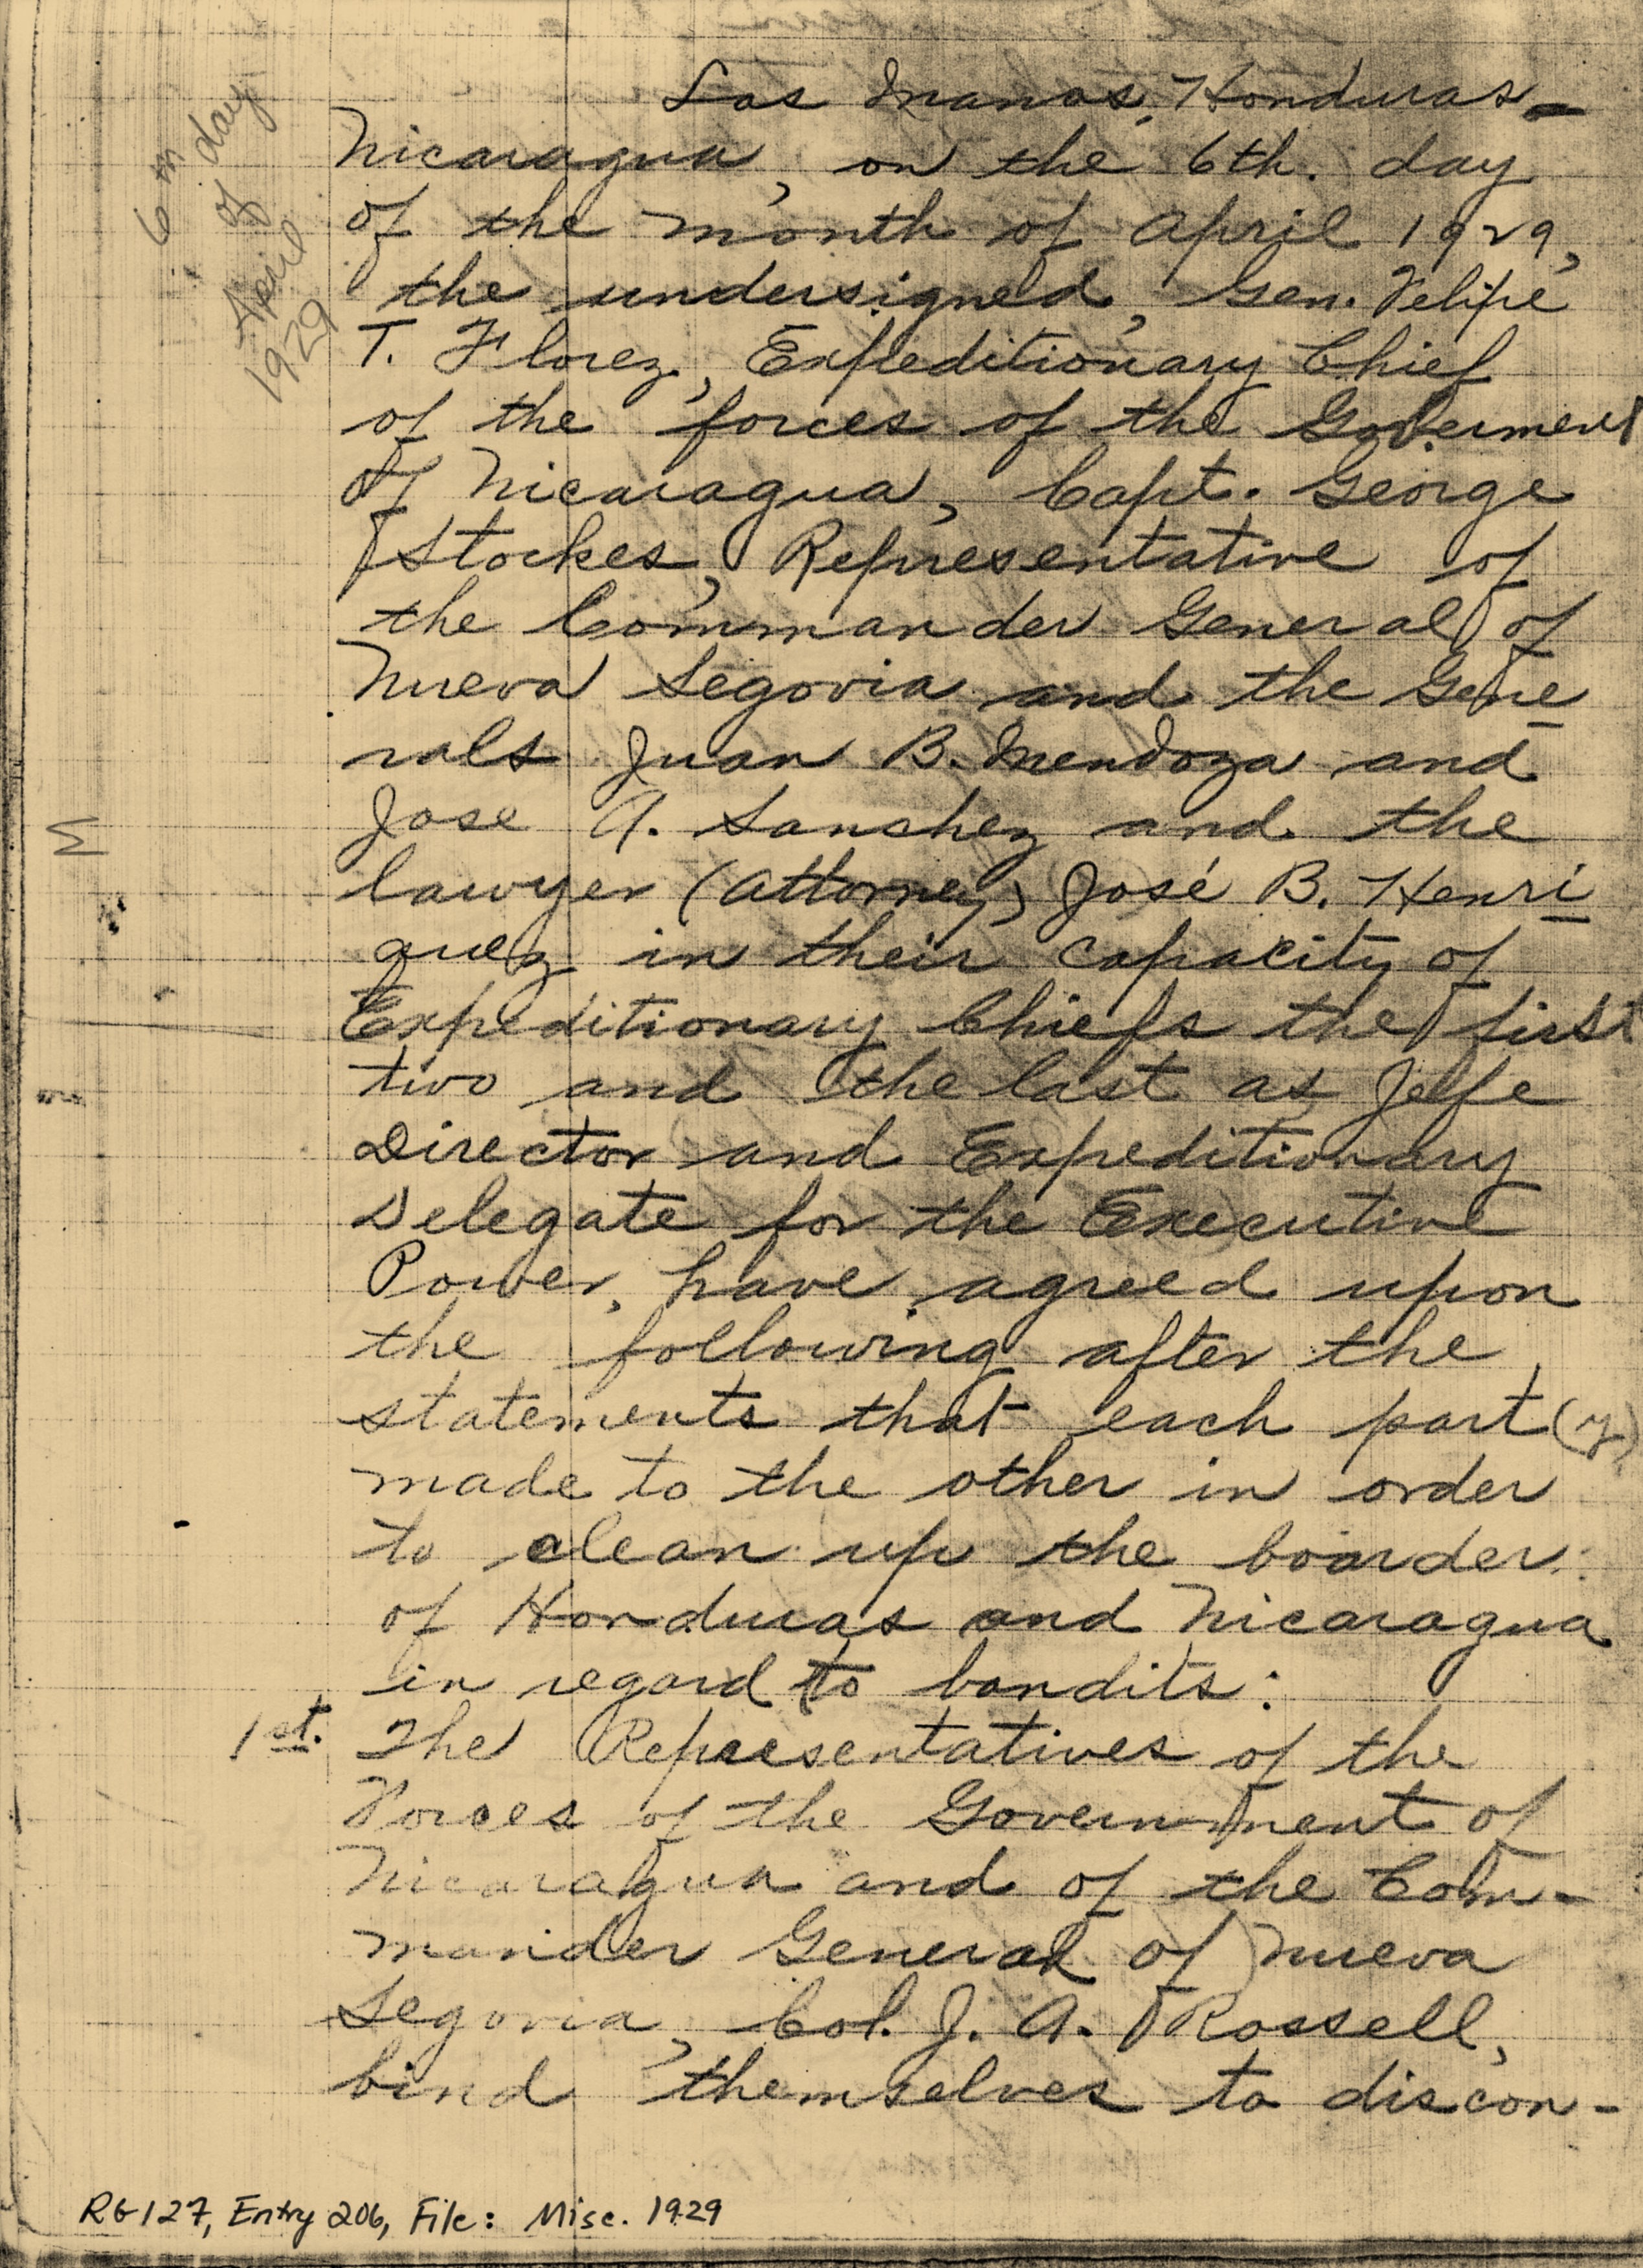 6th
of day
of
April
1929
Las Manos, Honduras -
Nicaragua, on the 6th. day
of the month of April 1929,
the undersigned, Gen. Felipe
T. Florez, Expeditionary Chief
of the forces of the Goverment
of Nicaragua, Capt. George
Stockes, Representative of
the Commander General of
Nueva Segovia and the Gene
rals Juan B. Mendoza and
Jose A. Sanchez and the
lawyer (attorney) José B. Henri
quez in their capacity of
Expeditionary Chiefs the first
two and the last as Jelfe
Director and Expeditionary
Delegate for the Executive
Power, have agreed upon
the following after the
statements that each part(y)
made to the other in order
to clean up the boarder
of Honduras and Nicaragua
in regard to bandits:
1st. The Representatives of the
Forces of the Government of
Nicaragua and of the Com-
mander General of Nueva
Segovia, Col. J. A. Rossell,
bind themselves to discon-
RG127, Entry 206, File: Misc. 1929